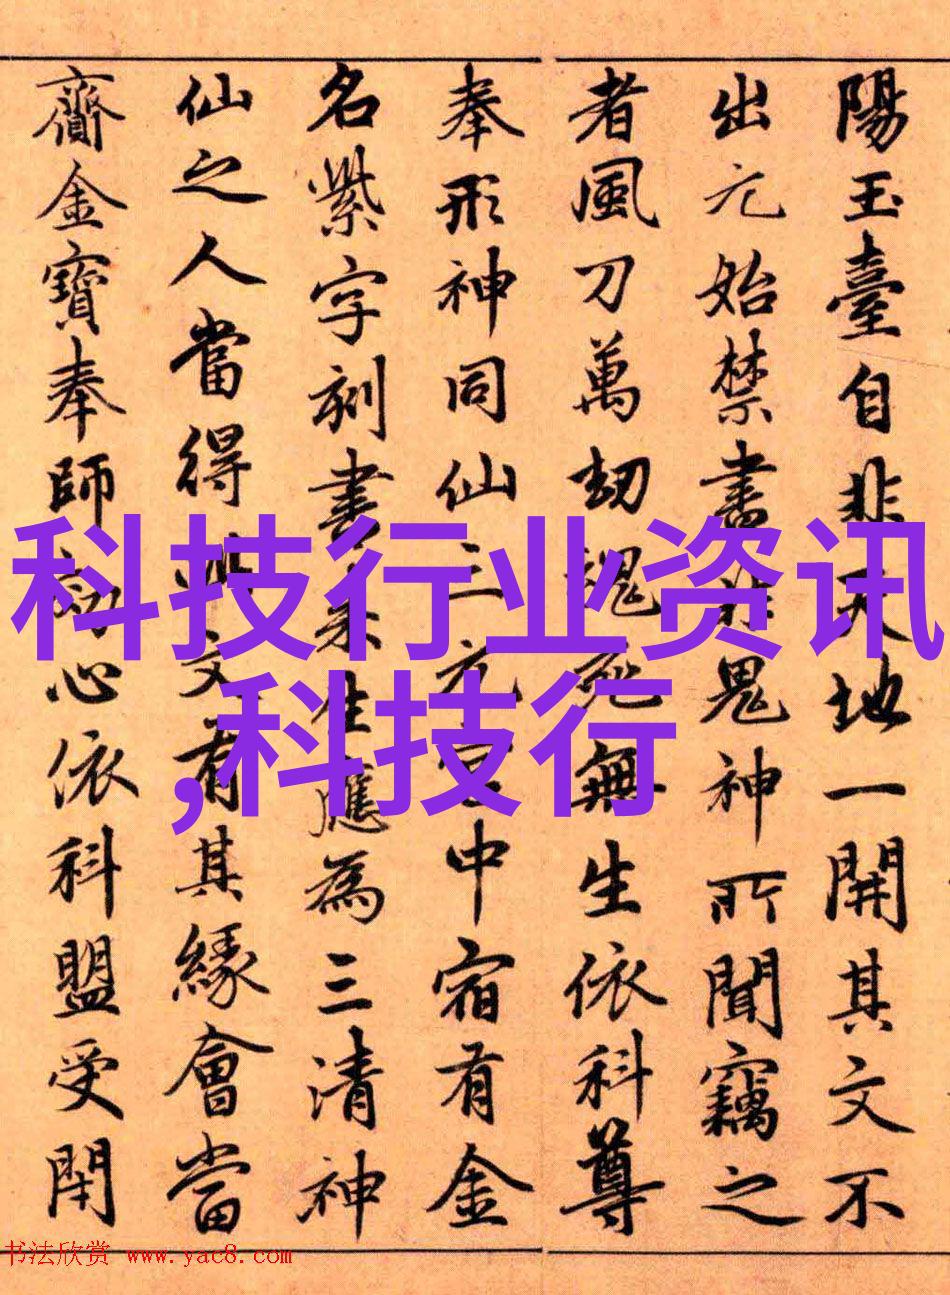 陽玉臺自非天地一開其文不
出元始禁書非鬼神所聞竊之
者風刀萬劫魂死無生依科尊
奉形神同仙三元宮中宿有金
名紫字刻書来生應為三清神
仙之人當得此文有其緣會當
齎金寶奉師効心依科盟受閇
科技行业资讯
,科技行
书法欣赏 www.yac8.com